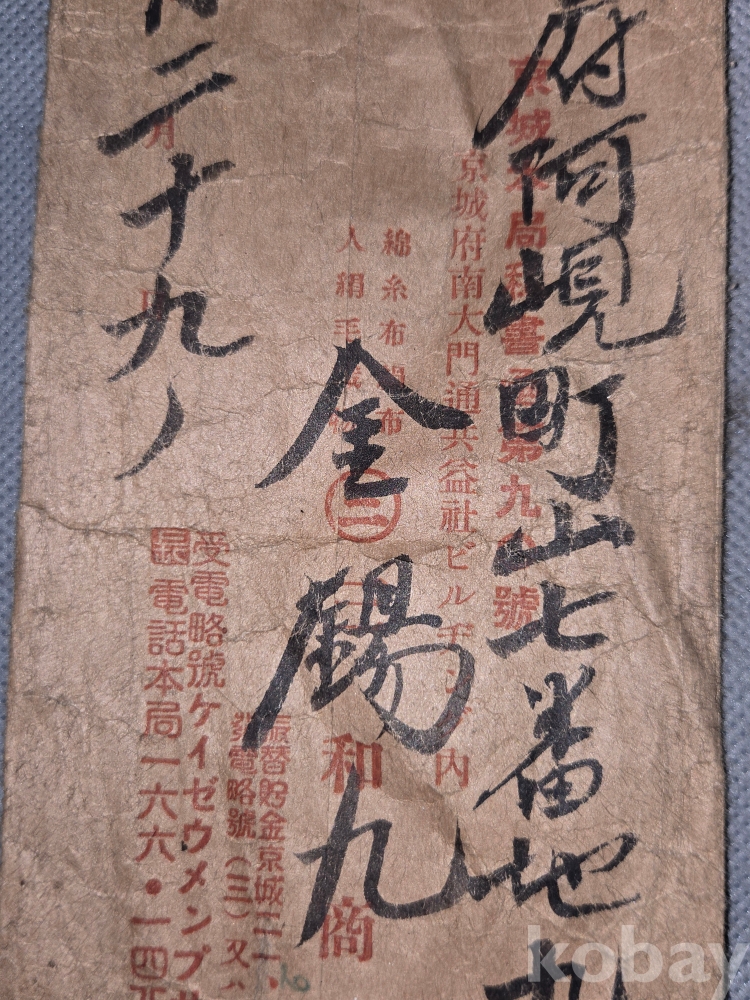 府阿峴町山七番地
京城本局私書函第九 號
京城府南大門通共益社ビルヂング内
金錫九
綿糸布 布
人絹毛
㊂ 三和 商
振替貯金京城三一
電略號(三)又ハ
受電略號ケイゼウメンプ
電話本局一六六・一四
月 二十九ノ
kobay